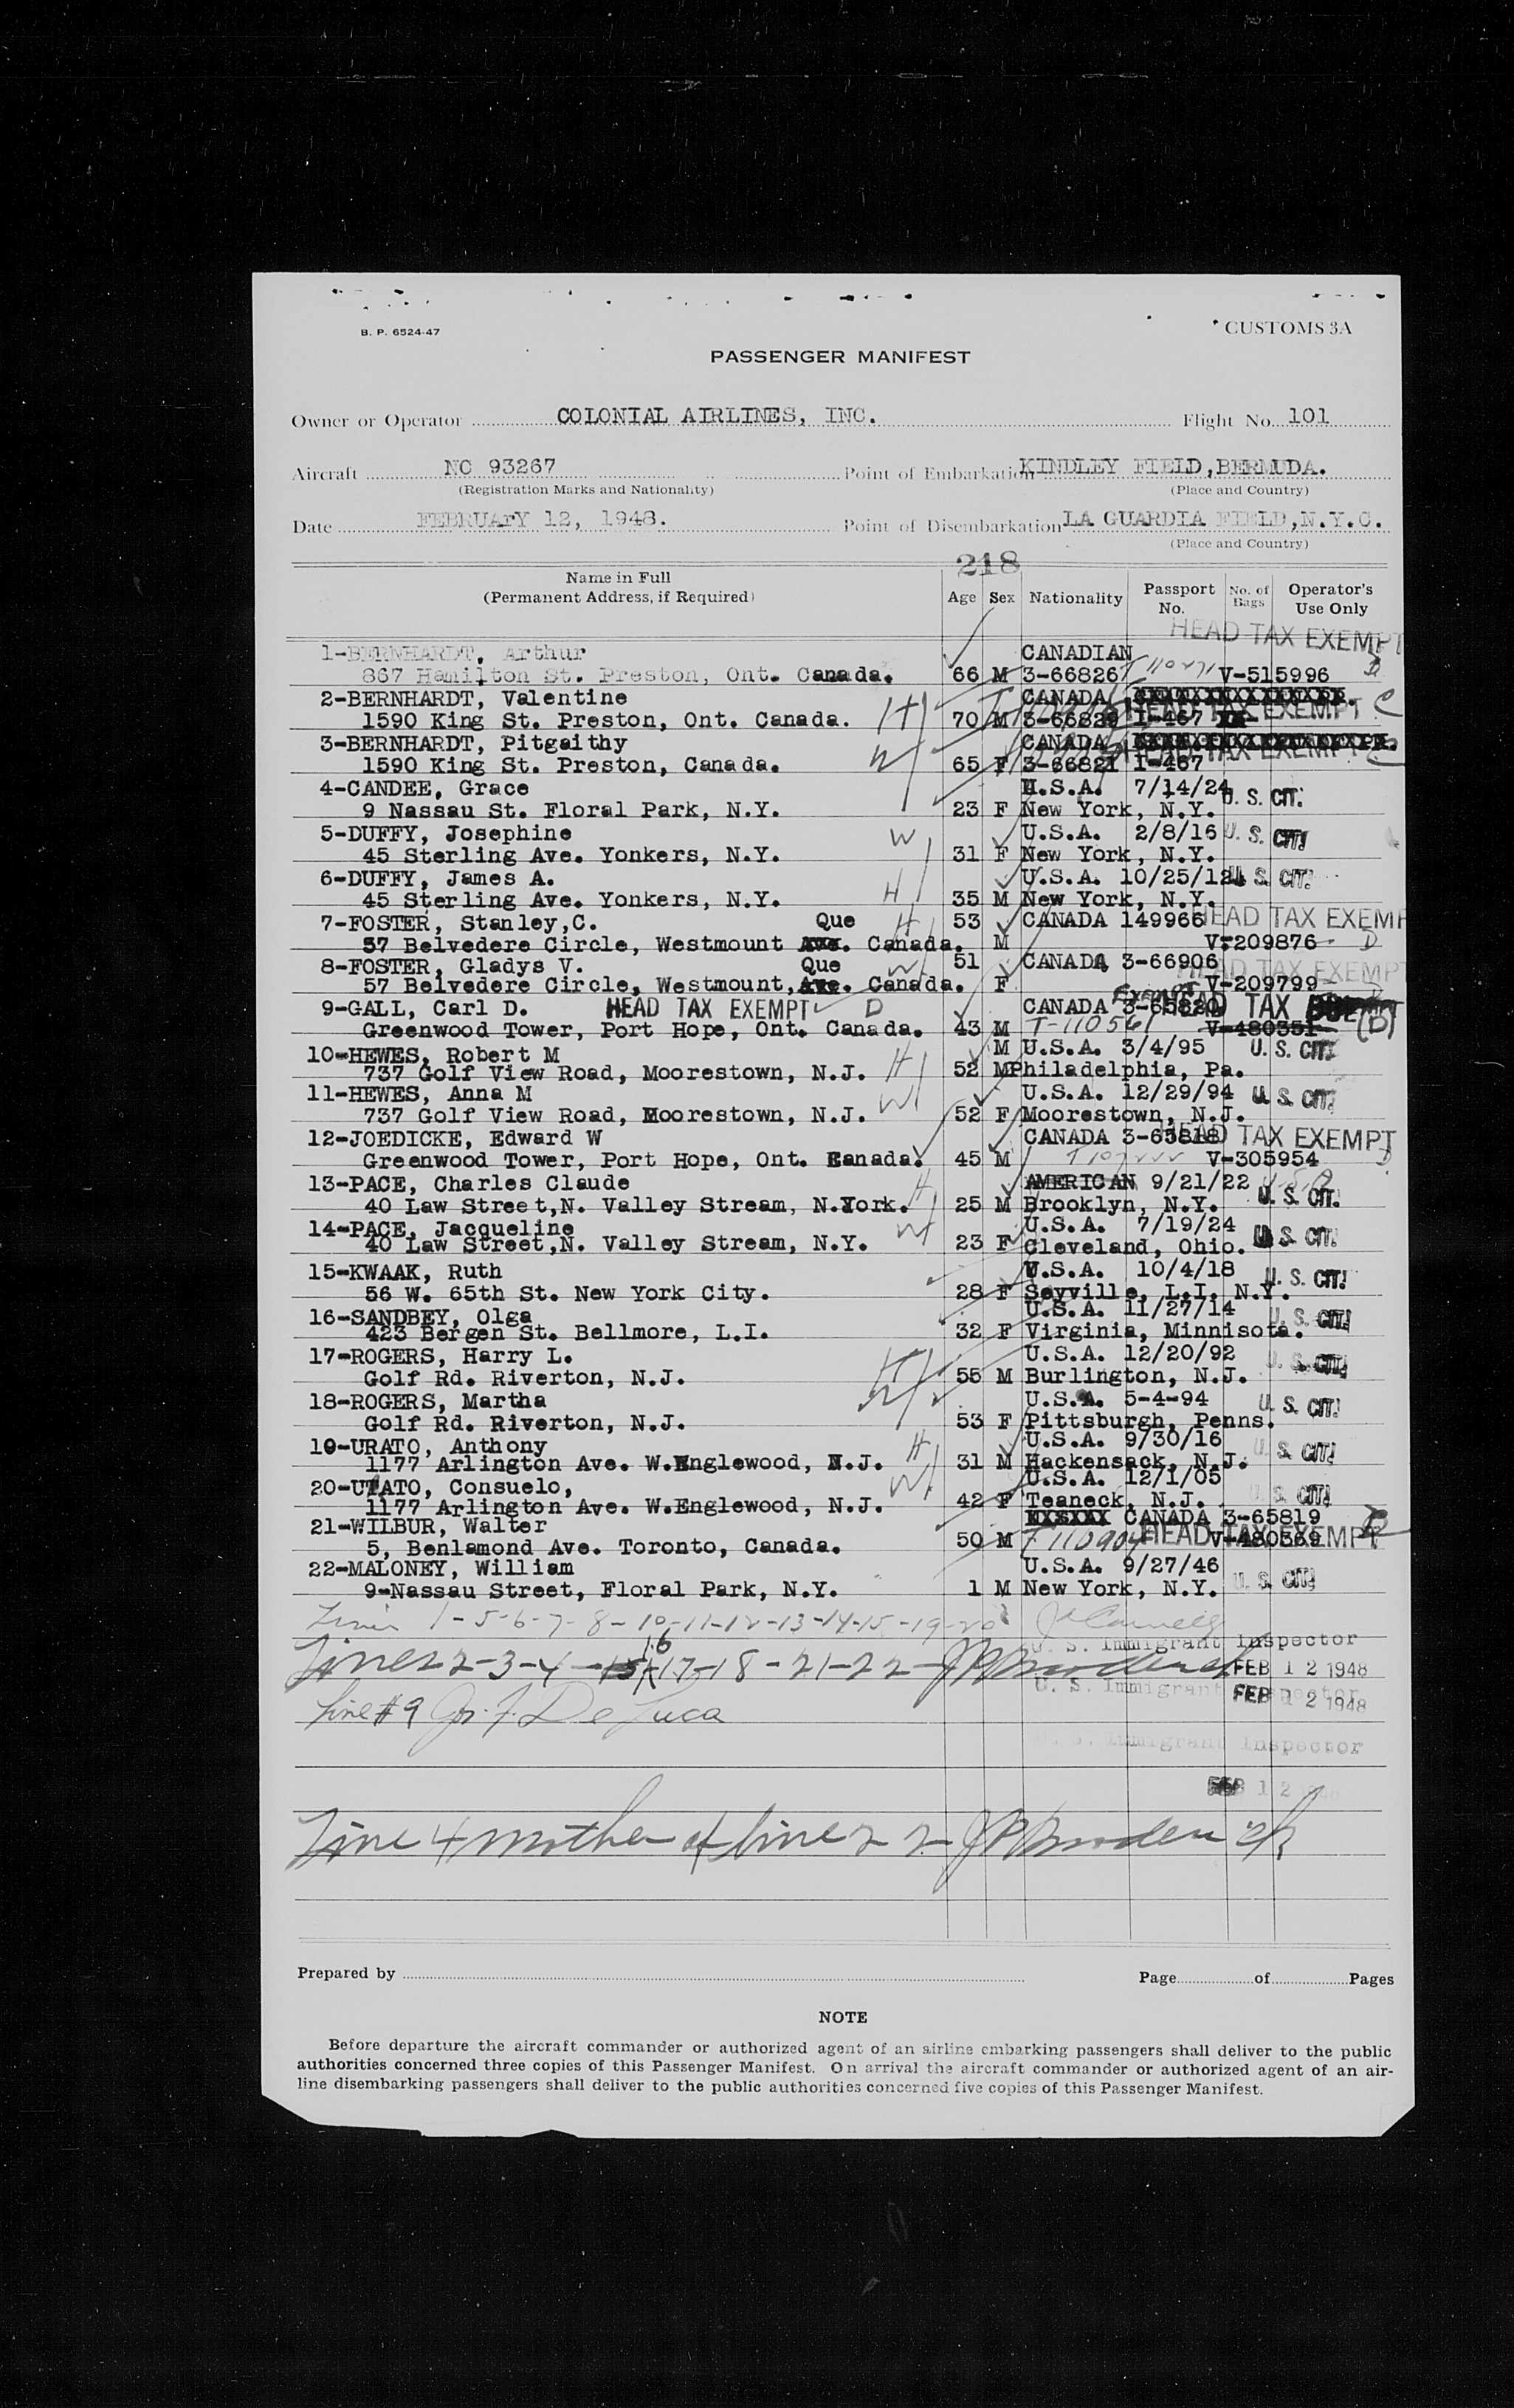 B. P. 6524-47
CUSTOMS 3A
PASSENGER MANIFEST
Owner or Operator COLONIAL AIRLINES, INC. Flight No. 101
Aircraft NC 93267 Point of Embarkation KINDLEY FIELD,BERMUDA.
(Registration Marks and Nationality) (Place and Country)
Date FEBRUARY 12, 1948. Point of Disembarkation LA GUARDIA FIELD,N.Y.C.
(Place and Country)
218
Name in Full
(Permanent Address, if Required) Age Sex Nationality Passport No. No. of Bags Operator's Use Only
HEAD TAX EXEMPT
1-BERNHARDT, Arthur CANADIAN
867 Hamilton St. Preston, Ont. Canada. 66 M 3-66826 V-515996
2-BERNHARDT, Valentine CANADA
1590 King St. Preston, Ont. Canada. H 70 M 3-66829 I-467 HEAD TAX EXEMPT C
3-BERNHARDT, Pitgaithy CANADA
1590 King St. Preston, Canada. W 65 F 3-66821 I-467 HEAD TAX EXEMPT
4-CANDEE, Grace U.S.A. 7/14/24 U. S. CIT.
9 Nassau St. Floral Park, N.Y. 23 F New York, N.Y.
5-DUFFY, Josephine W U.S.A. 2/8/16 U. S. CIT.
45 Sterling Ave. Yonkers, N.Y. 31 F New York, N.Y.
6-DUFFY, James A. U.S.A. 10/25/12 U. S. CIT.
45 Sterling Ave. Yonkers, N.Y. H 35 M New York, N.Y.
7-FOSTER, Stanley,C. Que H 53 CANADA 149966 HEAD TAX EXEMP
57 Belvedere Circle, Westmount Ave. Canada. M V-209876 D
8-FOSTER, Gladys V. Que W 51 CANADA 3-66906 HEAD TAX EXEMP
57 Belvedere Circle, Westmount,Ave. Canada. F V-209799
9-GALL, Carl D. HEAD TAX EXEMPT D CANADA 3-65820 Exempt HEAD TAX
Greenwood Tower, Port Hope, Ont. Canada. 43 M T-110561 V-480351 (D)
10-HEWES, Robert M H M U.S.A. 3/4/95 U. S. CIT.
737 Golf View Road, Moorestown, N.J. 52 M Philadelphia, Pa.
11-HEWES, Anna M U.S.A. 12/29/94 U. S. CIT.
737 Golf View Road, Moorestown, N.J. W 52 F Moorestown, N.J.
12-JOEDICKE, Edward W CANADA 3-65818 HEAD TAX EXEMPT
Greenwood Tower, Port Hope, Ont. Canada. 45 M V-305954 D
13-PACE, Charles Claude H AMERICAN 9/21/22
40 Law Street,N. Valley Stream, N.York. 25 M Brooklyn, N.Y. U. S. CIT.
14-PACE, Jacqueline W U.S.A. 7/19/24
40 Law Street,N. Valley Stream, N.Y. 23 F Cleveland, Ohio. U. S. CIT.
15-KWAAK, Ruth U.S.A. 10/4/18 U. S. CIT.
56 W. 65th St. New York City. 28 F Sayville, L.I. N.Y.
16-SANDBEY, Olga U.S.A. 11/27/14 U. S. CIT.
423 Bergen St. Bellmore, L.I. 32 F Virginia, Minnisota.
17-ROGERS, Harry L. H U.S.A. 12/20/92 U. S. CIT.
Golf Rd. Riverton, N.J. 55 M Burlington, N.J.
18-ROGERS, Martha W U.S.A. 5-4-94 U. S. CIT.
Golf Rd. Riverton, N.J. 53 F Pittsburgh, Penns.
19-URATO, Anthony H U.S.A. 9/30/16 U. S. CIT.
1177 Arlington Ave. W.Englewood, N.J. 31 M Hackensack, N.J.
20-UTATO, Consuelo, W U.S.A. 12/1/05 U. S. CIT.
1177 Arlington Ave. W.Englewood, N.J. 42 F Teaneck, N.J.
21-WILBUR, Walter CANADA 3-65819
5, Benlamond Ave. Toronto, Canada. 50 M T 110904 V-480369 HEAD TAX EXEMPT
22-MALONEY, William U.S.A. 9/27/46
9-Nassau Street, Floral Park, N.Y. 1 M New York, N.Y. U. S. CIT.
Lines 1-5-6-7-8-10-11-12-13-14-15-19-20
U. S. Immigrant Inspector
Lines 2-3-4-15-16-17-18-21-22 JP Broderick FEB 12 1948
U. S. Immigrant Inspector FEB 12 1948
Line #9 Jos. F. DeLuca
U. S. Immigrant Inspector
FEB 12
Line 4 mother of line 22 JP Broderick
Prepared by Page of Pages
NOTE
Before departure the aircraft commander or authorized agent of an airline embarking passengers shall deliver to the public
authorities concerned three copies of this Passenger Manifest. On arrival the aircraft commander or authorized agent of an air-
line disembarking passengers shall deliver to the public authorities concerned five copies of this Passenger Manifest.